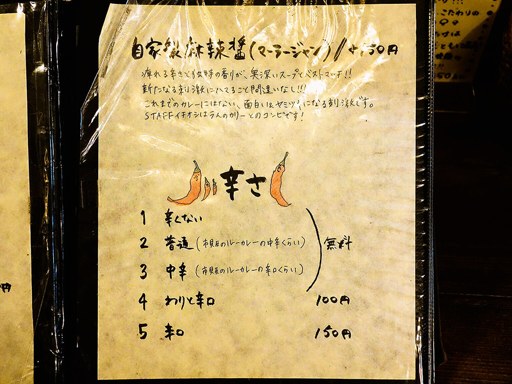 自家製麻辣醤(マーラージャン) // +150円
痺れる辛さと独特の香りが、奥深いスープとベストマッチ!!
新たなる刺激にハマること間違いなし!!!
これまでのカレーにはない、面白いほどヤミツキになる刺激です。
STAFFイチオシはラムのカリーとのコンビです!
辛さ
1 辛くない
2 普通(市販のルーカレーの中辛くらい) 無料
3 中辛(市販のルーカレーの辛口くらい)
4 わりと辛口 100円
5 辛口 150円
こだわりの
円